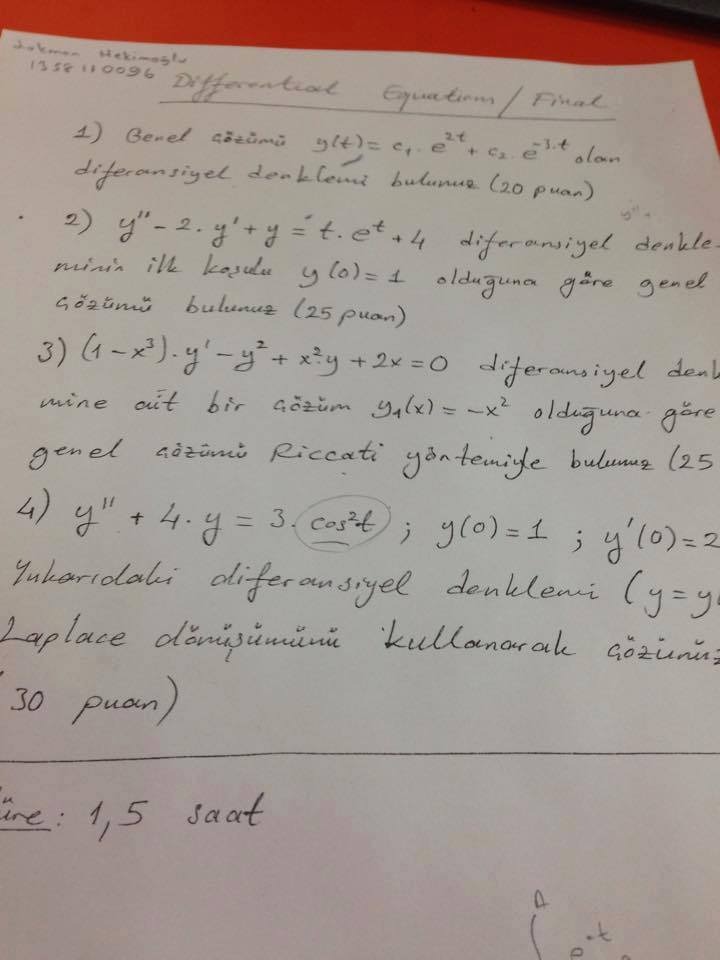 Lokman Hekimoğlu
1358110096
Differential Equations / Final
1) Genel çözümü y(t) = c₁. e²ᵗ + c₂. e⁻³·ᵗ olan
diferansiyel denklemi bulunuz (20 puan)
y"+
2) y" - 2. y' + y = t. eᵗ + 4 diferansiyel denkle-
minin ilk koşulu y(0) = 1 olduğuna göre genel
çözümü bulunuz (25 puan)
3) (1-x³). y' - y² + x²y + 2x = 0 diferansiyel denk
mine ait bir çözüm y₁(x) = -x² olduğuna göre
genel çözümü Riccati yöntemiyle bulunuz (25
4) y" + 4. y = 3. cos²t ; y(0) = 1 ; y'(0) = 2
Yukarıdaki diferansiyel denklemi (y = y(
Laplace dönüşümünü kullanarak çözünüz
30 puan)
üre: 1,5 saat